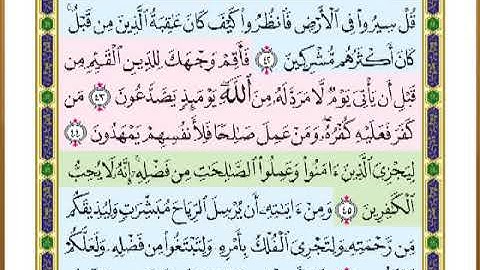 قُلْ سِيرُوا۟ فِى ٱلْأَرْضِ فَٱنظُرُوا۟ كَيْفَ كَانَ عَٰقِبَةُ ٱلَّذِينَ مِن قَبْلُ ۚ
كَانَ أَكْثَرُهُم مُّشْرِكِينَ ٤٢ فَأَقِمْ وَجْهَكَ لِلدِّينِ ٱلْقَيِّمِ مِن
قَبْلِ أَن يَأْتِىَ يَوْمٌ لَّا مَرَدَّ لَهُۥ مِنَ ٱللَّهِ ۖ يَوْمَئِذٍ يَصَّدَّعُونَ ٤٣ مَن
كَفَرَ فَعَلَيْهِ كُفْرُهُۥ ۖ وَمَنْ عَمِلَ صَٰلِحًا فَلِأَنفُسِهِمْ يَمْهَدُونَ ٤٤
لِيَجْزِىَ ٱلَّذِينَ ءَامَنُوا۟ وَعَمِلُوا۟ ٱلصَّٰلِحَٰتِ مِن فَضْلِهِۦٓ ۚ إِنَّهُۥ لَا يُحِبُّ
ٱلْكَٰفِرِينَ ٤٥ وَمِنْ ءَايَٰتِهِۦٓ أَن يُرْسِلَ ٱلرِّيَاحَ مُبَشِّرَٰتٍ وَلِيُذِيقَكُم
مِّن رَّحْمَتِهِۦ وَلِتَجْرِىَ ٱلْفُلْكُ بِأَمْرِهِۦ وَلِتَبْتَغُوا۟ مِن فَضْلِهِۦ وَلَعَلَّكُمْ